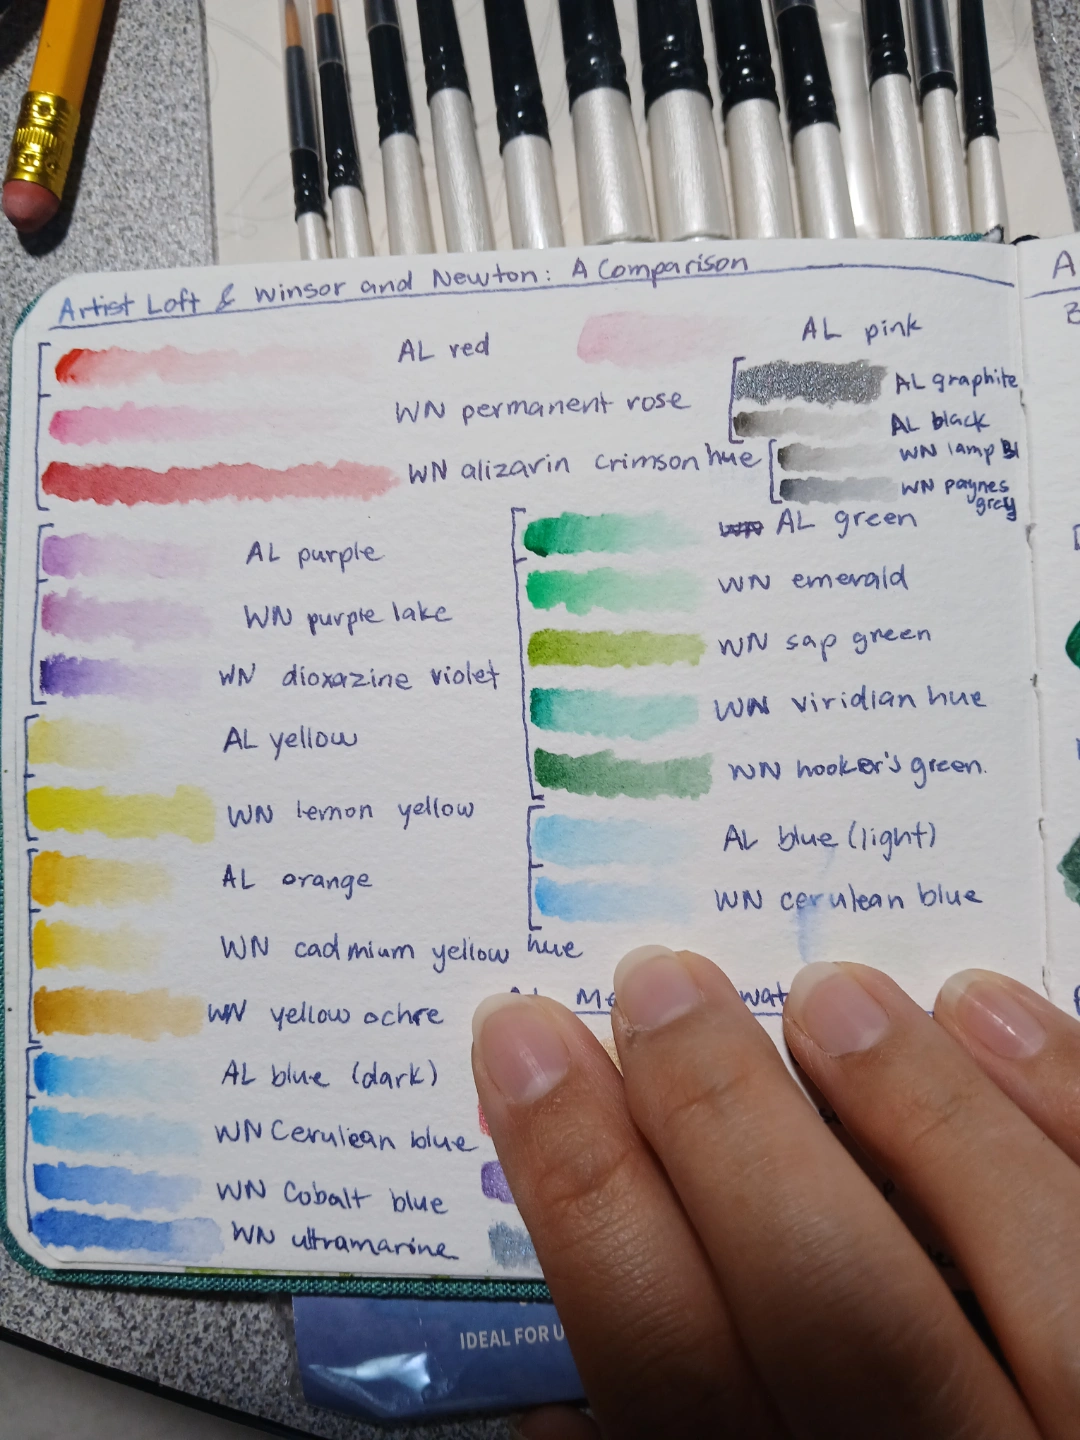 Artist Loft & Winsor and Newton: A Comparison
AL red
WN permanent rose
WN alizarin crimson hue
AL pink
AL graphite
AL black
WN lamp Bl
WN paynes
grey
AL purple
WN purple lake
WN dioxazine violet
AL yellow
WN lemon yellow
AL orange
WN cadmium yellow hue
WN yellow ochre
AL blue (dark)
WN Cerulean blue
WN Cobalt blue
WN ultramarine
AL green
WN emerald
WN sap green
WN viridian hue
WN hooker's green.
AL blue (light)
WN cerulean blue
IDEAL FOR